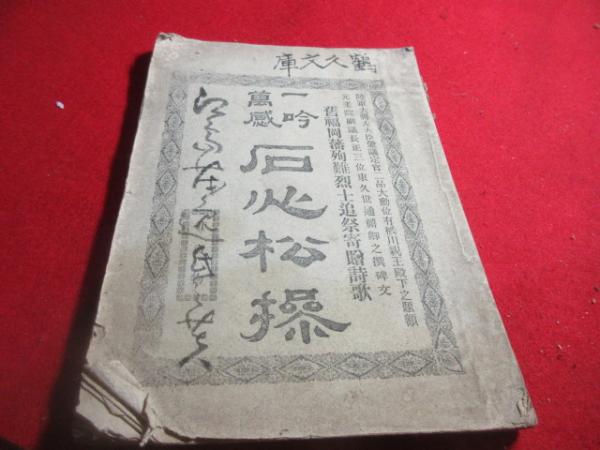 鶴久文庫
陸軍大將左大臣兼議定官二品大勲位有栖川親王殿下之題額
元老院副議長正三位東久世通禧卿之撰碑文
舊福岡藩殉難烈士追祭寄贈詩歌
一吟
萬感
石心松操